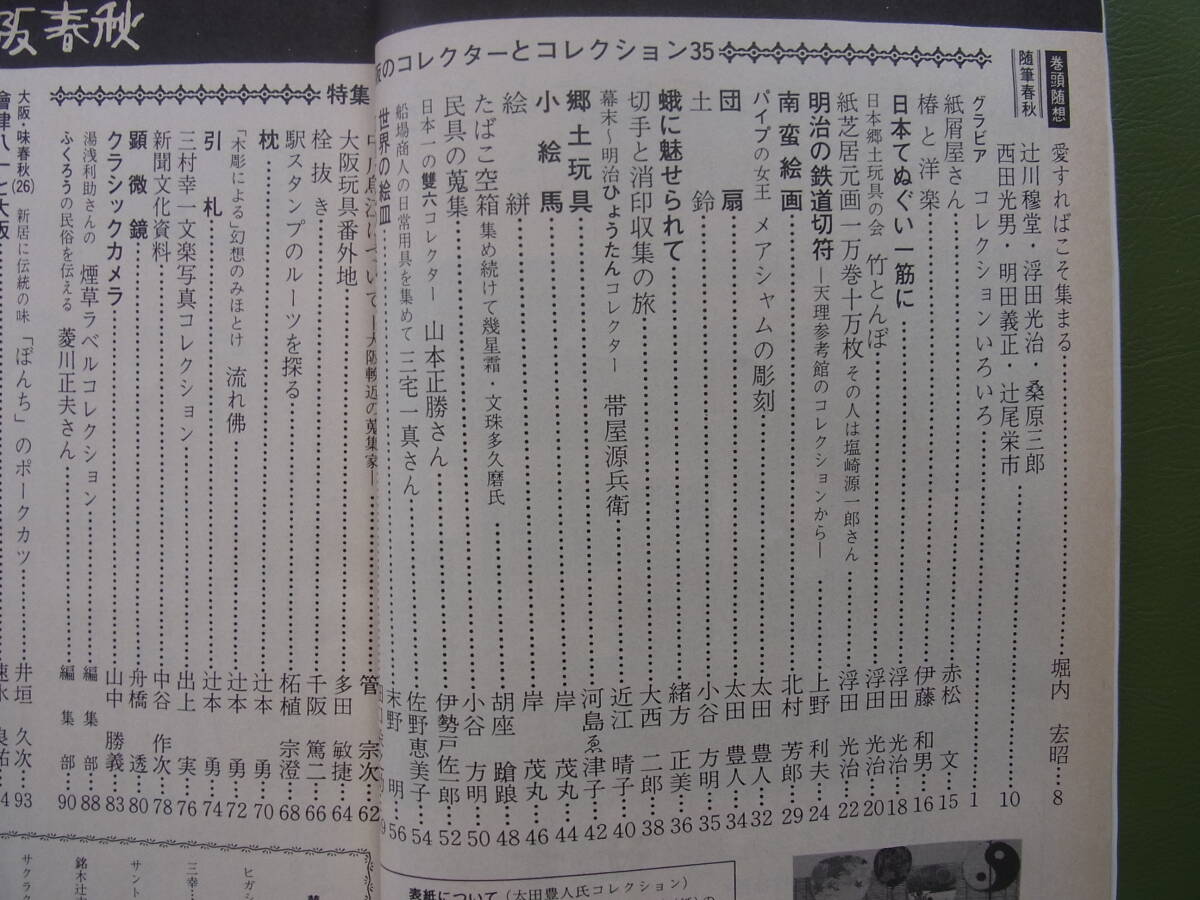 阪春秋
阪のコレクターとコレクション35
特集
巻頭随想
愛すればこそ集まる……堀内 宏昭…8
随筆春秋
辻川穆堂・浮田光治・桑原三郎
西田光男・明田義正・辻尾栄市……10
グラビア コレクションいろいろ……1
紙屑屋さん……赤松 文…15
椿と洋楽……伊藤 和男…16
日本てぬぐい一筋に……浮田 光治…18
日本郷土玩具の会 竹とんぼ……浮田 光治…20
紙芝居元画一万巻十万枚 その人は塩崎源一郎さん……浮田 光治…22
明治の鉄道切符―天理参考館のコレクションから―……上野 利夫…24
南蛮絵画……北村 芳郎…29
パイプの女王 メアシャムの彫刻……太田 豊人…32
団扇……太田 豊人…34
土鈴……小谷 方明…35
蛾に魅せられて……緒方 正美…36
切手と消印収集の旅……大西 二郎…38
幕末~明治ひょうたんコレクター 帯屋源兵衛……近江 晴子…40
郷土玩具……河島ゑ津子…42
小絵馬……岸 茂丸…44
絵絣……岸 茂丸…46
たばこ空箱 集め続けて幾星霜・文珠多久磨氏……胡座 蹌踉…48
民具の蒐集……小谷 方明…50
日本一の雙六コレクター 山本正勝さん……伊勢戸佐一郎…52
船場商人の日常用具を集めて 三宅一真さん……佐野恵美子…54
世界の絵皿……末野 明…56
について―大阪輓近の蒐集家―
9
大阪玩具番外地……管 宗次…62
栓抜き……多田 敏捷…64
駅スタンプのルーツを探る……千阪 篤二…66
枕……柘植 宗澄…68
「木彫による」幻想のみほとけ 流れ佛……辻本 勇…70
引札……辻本 勇…72
三村幸一文楽写真コレクション……辻本 勇…74
新聞文化資料……出上 実…76
顕微鏡……中谷 作次…78
クラシックカメラ……舟橋 透…80
湯浅利助さんの 煙草ラベルコレクション……山中 勝義…83
ふくろうの民俗を伝える 菱川正夫さん……編集部…88
編集部…90
大阪・味春秋(26) 新居に伝統の味 「ぽんち」のポークカツ……井垣 久次…93
會津八一と大阪……速水 良祐…4
表紙について(太田豊人氏コレクション)
ヒガシ
三幸…
サント
銘木辻
サクラク